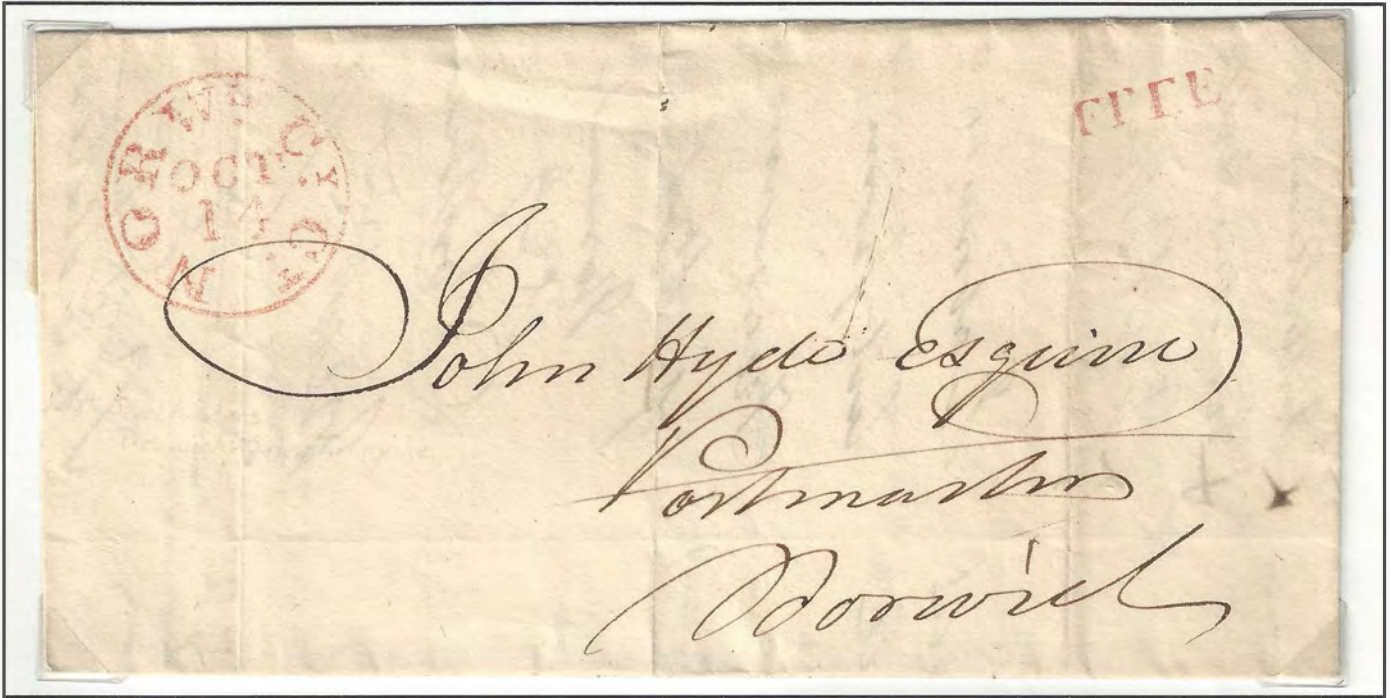 NORWH CY. CT.
OCT.
14
FREE
John Hyde Esquire
Postmaster
Norwich